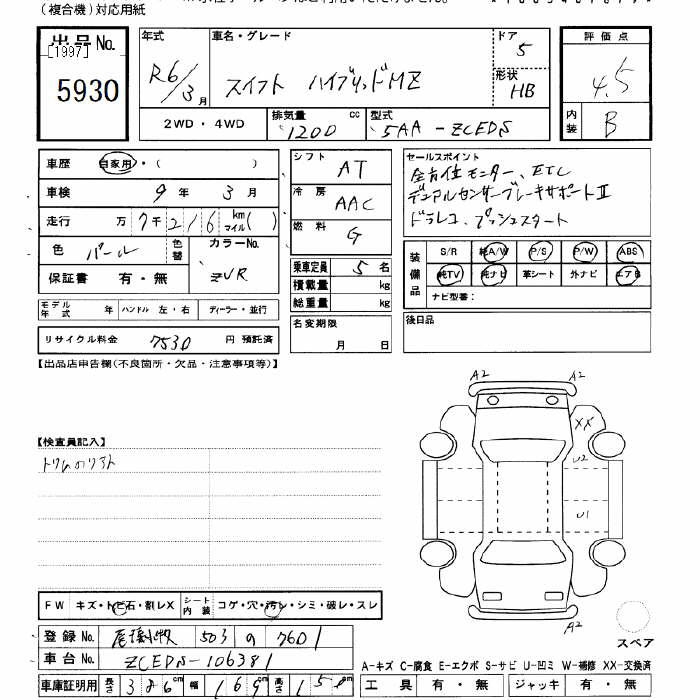 (複合機)対応用紙
出品No.
[1997]
5930
年式 R6/3月
車名・グレード スイフト ハイブリッドMZ
ドア 5
形状 HB
評価点 4.5
内装 B
2WD・4WD
排気量 1200 cc
型式 5AA-ZCEDS
車歴 自家用・( )
車検 9年 3月
走行 万 7千216 km マイル( )
色 パール 色替
カラーNo. ZVR
保証書 有・無
モデル年式 年 ハンドル 左・右 ディーラー・並行
リサイクル料金 7530 円 預託済
シフト AT
冷房 AAC
燃料 G
乗車定員 5名
積載量 kg
総重量 kg
名変期限 月 日
セールスポイント
全方位モニター、ETC
デュアルセンサーブレーキサポートⅡ
ドラレコ、プッシュスタート
装備品 S/R 純A/W P/S P/W ABS
純TV 純ナビ 革シート 外ナビ エアB
ナビ型番:
後日品
【出品店申告欄(不良箇所・欠品・注意事項等)】
【検査員記入】
A2 A2
XX
U2
U1
A2
スペア
FW キズ・トビ石・割レX シート内装 コゲ・穴・汚レ・シミ・破レ・スレ
登録No. 尾張小牧 503 の 7601
車台No. ZCEDS-106381
車庫証明用 長さ 386cm 幅 169cm 高さ 150cm
A-キズ C-腐食 E-エクボ S-サビ U-凹ミ W-補修 XX-交換済
工具 有・無 ジャッキ 有・無